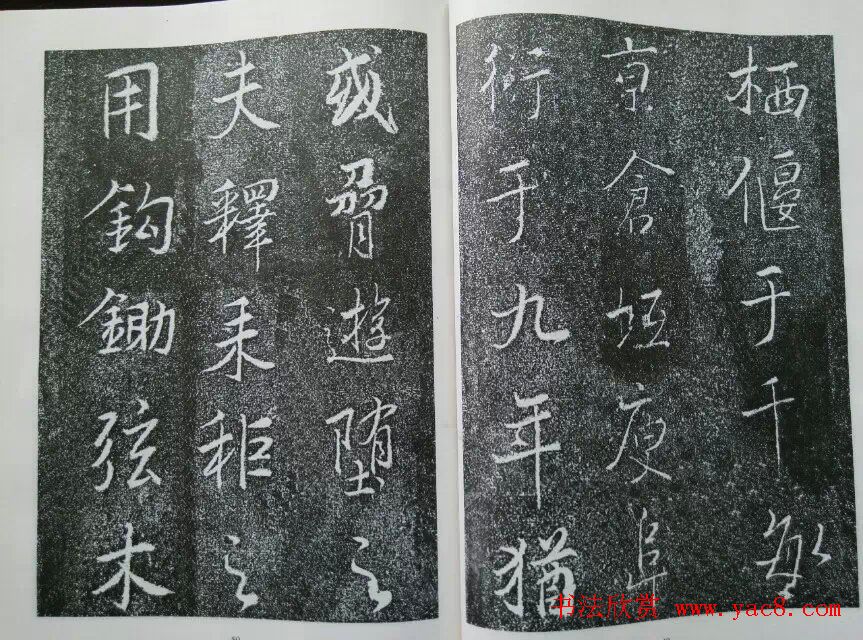 栖偃于千畝
京倉坻庾阜
衍于九年猶
或遊墮之
夫釋耒秬之
用鈎鋤弦木
书法欣赏 www.yac8.com